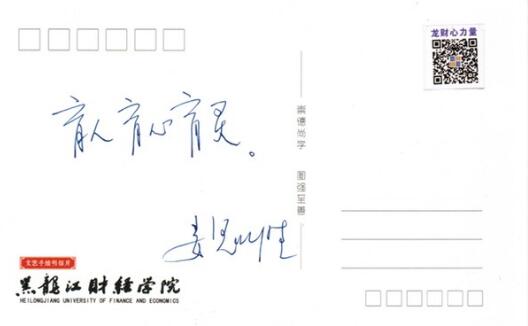 龙财心力量
育人育心育灵。
崇德尚学 图强至善
文艺手绘明信片
黑龍江财经学院
HEILONGJIANG UNIVERSITY OF FINANCE AND ECONOMICS